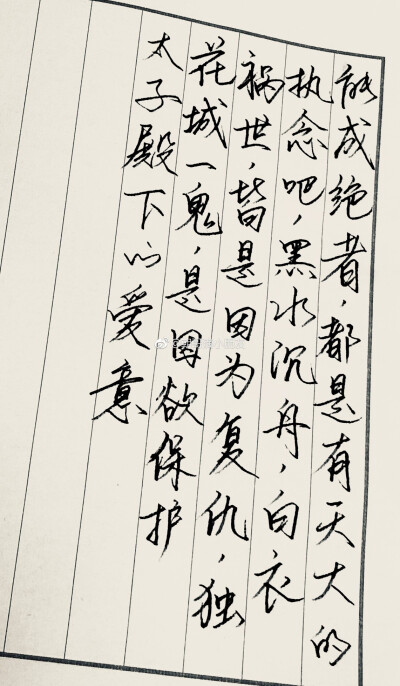 能成绝者，都是有天大的
执念吧，黑水沉舟，白衣
祸世，皆是因为复仇，独
花城一鬼，是因欲保护
太子殿下的爱意